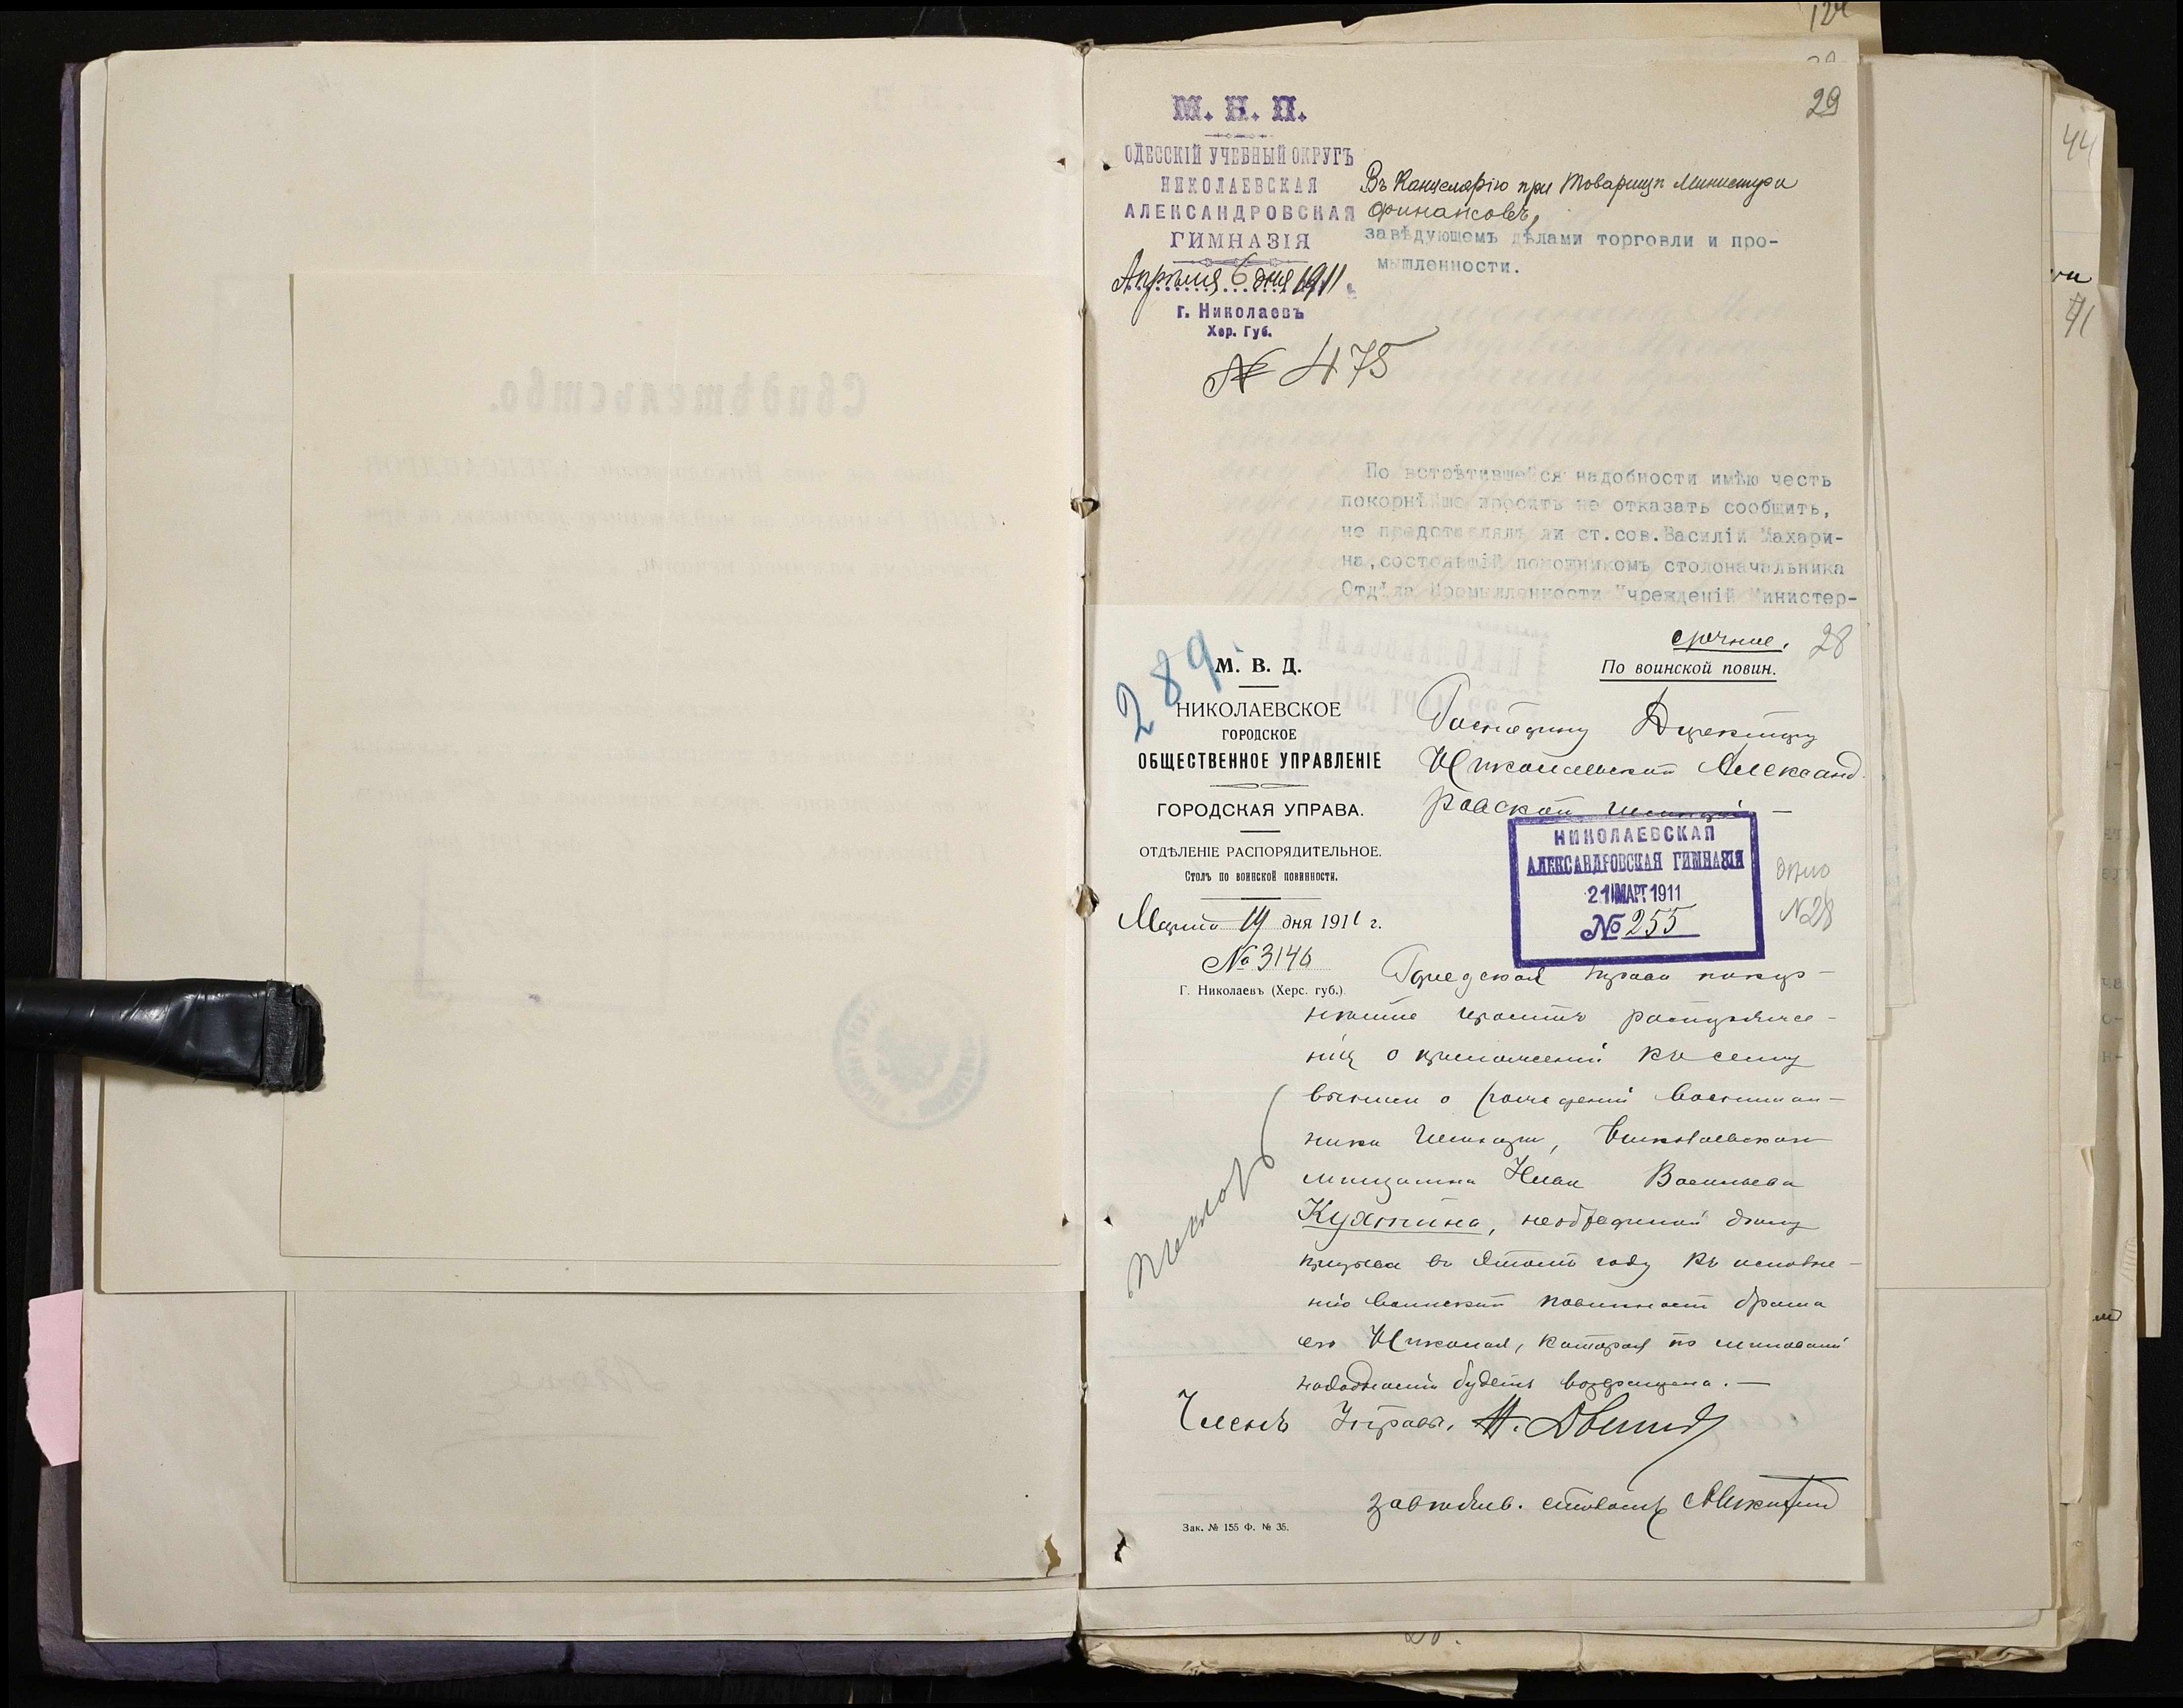 124
29
М. Н. П.
ОДЕССКІЙ УЧЕБНЫЙ ОКРУГЪ
НИКОЛАЕВСКАЯ
АЛЕКСАНДРОВСКАЯ
ГИМНАЗІЯ
Апрѣля 6 дня 1911
г. Николаевъ
Хер. Губ.
№ 475
Въ Канцелярію при Товарищѣ Министра
Финансовъ,
завѣдующемъ дѣлами торговли и про-
мышленности.
По встрѣтившейся надобности имѣю честь
покорнѣйше просить не отказать сообщить,
не представлялъ ли ст.сов.Василій Махари-
на,состоявшій помощникомъ столоначальника
Отдѣла Промышленности Учрежденій Министер-
срочное. 28
По воинской повин.
289
М. В. Д.
НИКОЛАЕВСКОЕ
ГОРОДСКОЕ
ОБЩЕСТВЕННОЕ УПРАВЛЕНІЕ
ГОРОДСКАЯ УПРАВА.
ОТДѢЛЕНІЕ РАСПОРЯДИТЕЛЬНОЕ.
Столъ по воинской повинности.
Марта 19 дня 1911 г.
№ 3146
Г. Николаевъ (Херс. губ.).
Господину Директору
Николаевской Александ-
ровской гимназіи
НИКОЛАЕВСКАЯ
АЛЕКСАНДРОВСКАЯ ГИМНАЗІЯ
21 МАРТ 1911
№ 255
дѣло
№28
Городская Управа покор-
нѣйше проситъ распоряже-
нія о приложеніи къ сему
выписи о рожденіи воспитан-
ника гимназіи, Николаевскаго
мѣщанина Ивана Васильева
Кухтина, необходимой для
призыва въ этомъ году къ исполне-
нію воинской повинности брата
его Николая, которая по минованіи
надобности будетъ возвращена.—
Членъ Управы,
Завѣдыв. столомъ
Зак. № 155 Ф. № 35.
44
41